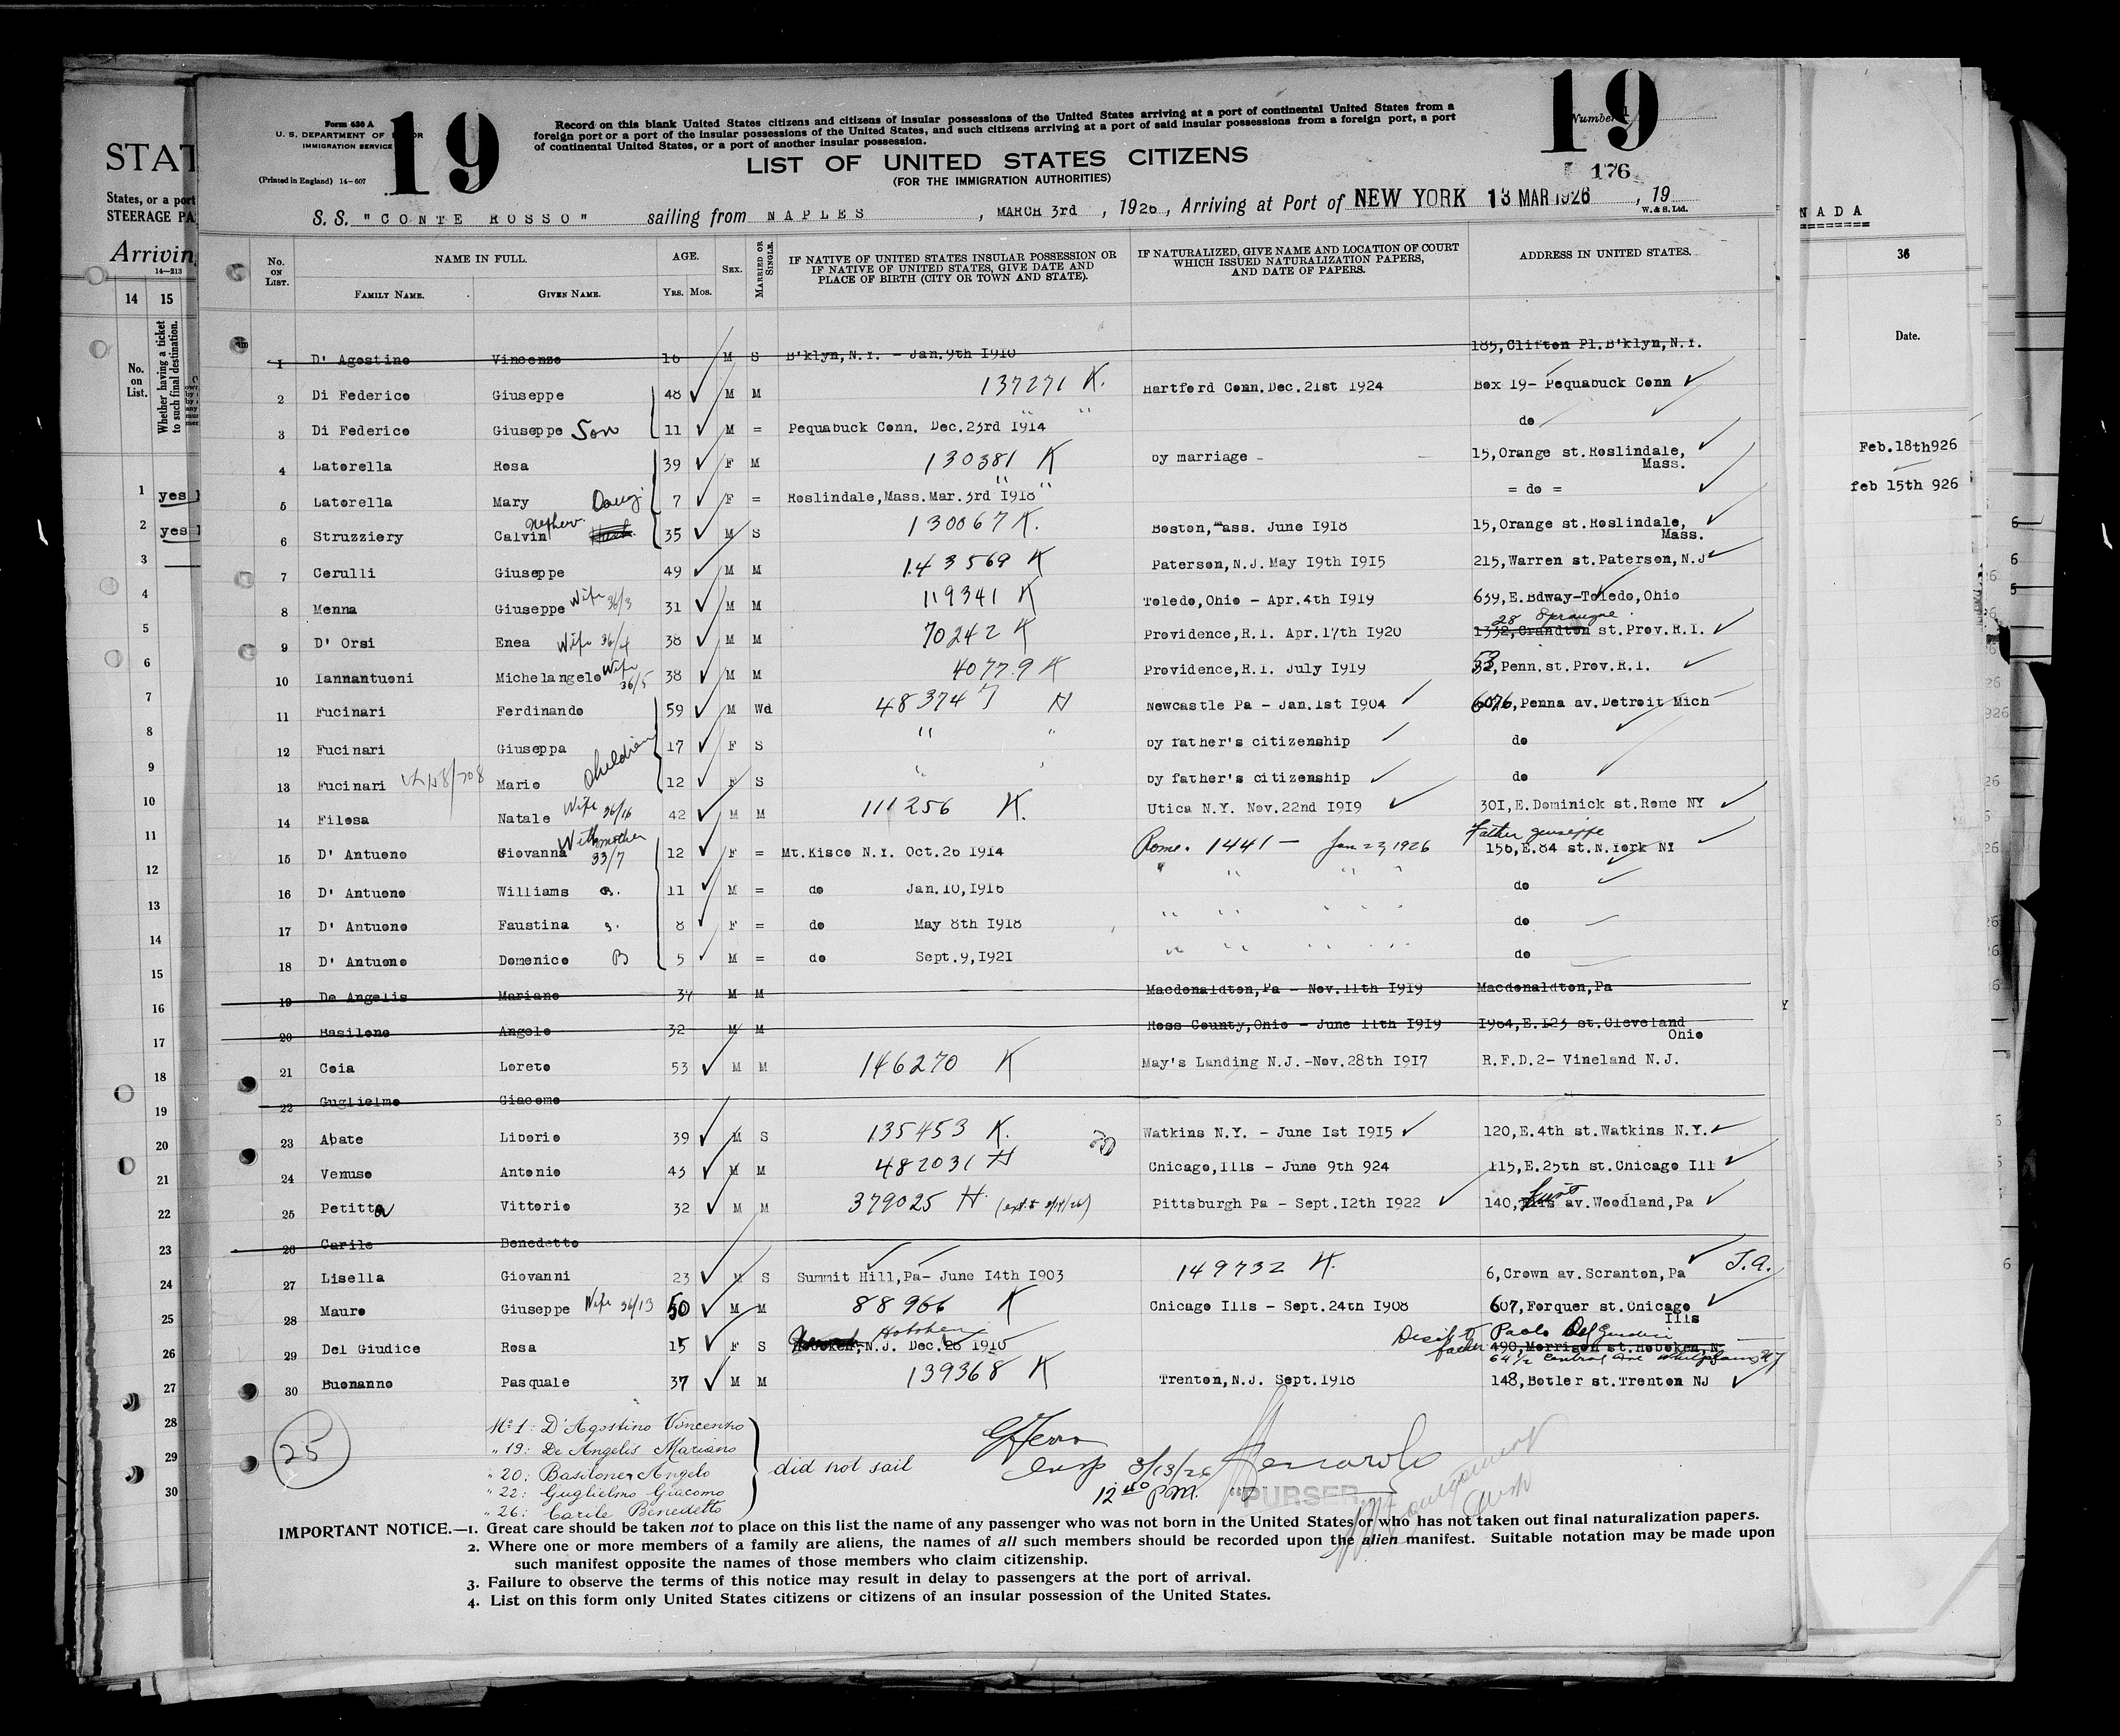 STAT
States, or a port
STEERAGE PA
Arrivin
14—213
14 15
No. on List.
Whether having a ticket to such final destination.
1 yes
2 yes
3
4
5
6
7
8
9
10
11
12
13
14
15
16
17
18
19
20
21
22
23
24
25
26
27
28
29
30
Form 630 A
U. S. DEPARTMENT OF LABOR
IMMIGRATION SERVICE
(Printed in England) 14—607
19
Record on this blank United States citizens and citizens of insular possessions of the United States arriving at a port of continental United States from a
foreign port or a port of the insular possessions of the United States, and such citizens arriving at a port of said insular possessions from a foreign port, a port
of continental United States, or a port of another insular possession.
LIST OF UNITED STATES CITIZENS
(FOR THE IMMIGRATION AUTHORITIES)
19
Number 1
176
S. S. "CONTE ROSSO" sailing from NAPLES, MARCH 3rd, 1926, Arriving at Port of NEW YORK 13 MAR 1926, 19
W. & S. Ltd.
No. on List. NAME IN FULL. AGE. Sex. Married or Single. IF NATIVE OF UNITED STATES INSULAR POSSESSION OR IF NATIVE OF UNITED STATES, GIVE DATE AND PLACE OF BIRTH (CITY OR TOWN AND STATE). IF NATURALIZED, GIVE NAME AND LOCATION OF COURT WHICH ISSUED NATURALIZATION PAPERS, AND DATE OF PAPERS. ADDRESS IN UNITED STATES.
Family Name. Given Name. Yrs. Mos.
1 D' Agostino Vincenzo 16 M S B'klyn, N.Y. - Jan. 9th I910 185, Clifton Pl. B'klyn, N.Y.
2 Di Federico Giuseppe 48 M M 137271 K. Hartford Conn. Dec. 21st I924 Box 19- Pequabuck Conn
3 Di Federico Giuseppe Son 11 M = Pequabuck Conn. Dec. 23rd I914 " " do
4 Latorella Rosa 39 F M 130381 K by marriage - 15, Orange st. Roslindale, Mass.
5 Latorella Mary Daug. 7 F = Roslindale, Mass. Mar. 3rd I918 " " = do =
6 Struzziery Calvin Nephew 35 M S 130067 K. Boston, Mass. June I918 15, Orange st. Roslindale, Mass.
7 Cerulli Giuseppe 49 M M 143569 K Paterson, N.J. May I9th I915 215, Warren st. Paterson, N.J
8 Menna Giuseppe Wife 36/3 31 M M 119341 K Toledo, Ohio - Apr. 4th I919 639, E. Bdway-Toledo, Ohio
9 D' Orsi Enea Wife 36/4 38 M M 70242 K Providence, R.I. Apr. 17th I920 1332, Crandton 28 Sprague st. Prov. R.I.
10 Iannantuoni Michelangelo Wife 36/5 38 M M 40779 K Providence, R.I. July I919 53, Penn. st. Prov. R.I.
11 Fucinari Ferdinando 59 M Wd 483747 H Newcastle Pa - Jan. 1st I904 6076, Penna av. Detroit Mich
12 Fucinari Giuseppa Children 17 F S " " by father's citizenship do
13 Fucinari Mario 12 F S " " by father's citizenship do
14 Filosa Natale Wife 36/16 42 M M 111256 K. Utica N.Y. Nov. 22nd I919 301, E. Dominick st. Rome NY
15 D' Antuono Giovanna With mother 33/7 12 F = Mt. Kisco N.Y. Oct. 26 I914 Rome. 1441 — Jan 23, 1926 Father Giuseppe 156, E. 84 st. N. York NY
16 D' Antuono Williams 11 M = do Jan. 10, I916 " " " " do
17 D' Antuono Faustina s. 8 F = do May 8th I918 " " " " do
18 D' Antuono Domenico B 5 M = do Sept. 9, I921 " " " " do
19 De Angelis Mariano 34 M M Macdonaldton, Pa - Nov. 11th I919 Macdonaldton, Pa
20 Basilone Angelo 32 M M Ross County, Ohio - June 11th I919 1964, E. I23 st. Cleveland Ohio
21 Coia Loreto 53 M M 146270 K May's Landing N.J. -Nov. 28th I917 R.F.D. 2- Vineland N.J.
22 Guglielmo Giacomo
23 Abate Liborio 39 M S 135453 K. Watkins N.Y. - June 1st I915 120, E. 4th st. Watkins N.Y.
24 Venuso Antonio 43 M M 482031 H Chicago, Ills - June 9th 924 115, E. 25th st. Chicago Ill
25 Petitta Vittorio 32 M M 379025 H. Pittsburgh Pa - Sept. I2th I922 140, First av. Woodland, Pa
26 Carile Benedetto
27 Lisella Giovanni 23 M S Summit Hill, Pa- June I4th I903 149732 K. 6, Crown av. Scranton, Pa J.A.
28 Mauro Giuseppe Wife 36/13 50 M M 88966 K Chicago Ills - Sept. 24th I908 607, Forquer st. Chicago Ills
29 Del Giudice Rosa 15 F S Hoboken Hoboken, N.J. Dec. 26 I910 father Paolo Del Giudice 490, Morrison st. Hoboken, N. 64 1/2 Central Ave
30 Buonanno Pasquale 37 M M 139368 K Trenton, N.J. Sept. I918 148, Botler st. Trenton NJ
25
No 1: D'Agostino Vincenzo
" 19: De Angelis Mariano
" 20: Basilone Angelo
" 22: Guglielmo Giacomo
" 26: Carile Benedetto
did not sail
Insp 3/13/26
12 P.M.
"PURSER"
IMPORTANT NOTICE.—1. Great care should be taken not to place on this list the name of any passenger who was not born in the United States or who has not taken out final naturalization papers.
2. Where one or more members of a family are aliens, the names of all such members should be recorded upon the alien manifest. Suitable notation may be made upon
such manifest opposite the names of those members who claim citizenship.
3. Failure to observe the terms of this notice may result in delay to passengers at the port of arrival.
4. List on this form only United States citizens or citizens of an insular possession of the United States.
NADA
36
Date.
Feb. 18th926
feb 15th 926